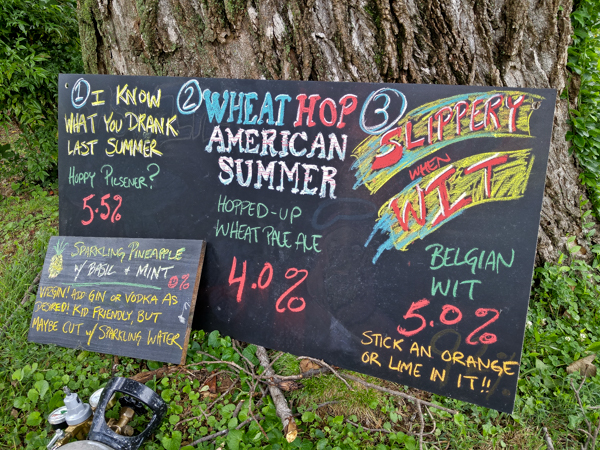 1 I KNOW
WHAT YOU DRANK
LAST SUMMER
HOPPY PILSENER?
5.5%
2 WHEAT HOP
AMERICAN
SUMMER
HOPPED-UP
WHEAT PALE ALE
4.0%
3 SLIPPERY
WHEN
WIT
BELGIAN
WIT
5.0%
STICK AN ORANGE
OR LIME IN IT!!
SPARKLING PINEAPPLE
W/ BASIL + MINT 0%
VIRGIN! ADD GIN OR VODKA AS
DESIRED! KID FRIENDLY, BUT
MAYBE CUT W/ SPARKLING WATER